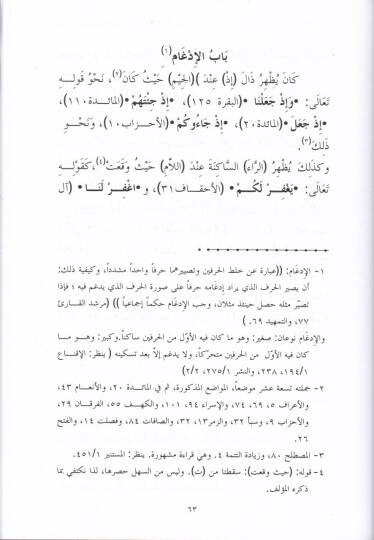 بَابُ الإِدْغَام(١)
كَانَ يُظْهِرُ ذَالَ (إِذْ) عِنْدَ )(الجِيْمِ) حَيْثُ كَانَ(٢)، نَحْوُ قَولِـهِ
تَعَالَى: •وَإِذْ جَعَلْنَا •(البقرة ١٢٥)، •إِذْ جِئْتَهُمْ •(المائـدة١١٠)،
•إِذْ جَعَلَ •(المائدة٢٠)، •إِذْ جَاءُوكُمْ •(الأحـزاب١٠)، وَنَحْـوِ
ذَلِكَ(٣).
وكذلِكَ يُظْهِرُ (الرَّاءَ) السَّاكِنَةَ عِنْدَ (اللاَّمِ) حَيْثُ وَقَعَتْ(٤)،كَقَوْلِـهِ
تَعَالَى: •يَغْفِرْ لَكُـمْ• (الأحقـاف٣١)، و •اغْفِـرْ لَنَـا • (آل
١- الإدغام: ((عبارة عن خلط الحرفين وتصييرهما حرفاً واحداً مشدداً، وكيفية ذلك:
أن يصير الحرف الذي يراد إدغامه حرفاً على صورة الحرف الذي يدغم فيه ؛ فإذا
تصيّر مثله حصل حينئذ مثلان، وجب الإدغام حكماً إجماعياً )) (مرشد القـارئ
٧٧، والتمهيد ٦٩. )
والإدغام نوعان: صغير: وهو ما كان فيه الأوّل من الحرفين ساكناً.وكبير: وهـو مـا
كان فيه الأوّل من الحرفين متحرّكاً، ولا يدغم إلاّ بعد تسكينه ( ينظر: الإقنـاع
١٩٤/١، ٢٣٨، والنشر ٢٧٥/١، ٢/٢)
٢- جملته تسعة عشر موضعاً، المواضع المذكورة، ثم في المائـدة ٢٠، والأنعـام ٤٣،
والأعراف ٥، ٦٩، ٧٤، والإسراء ٩٤، ١٠١، والكهـف ٥٥، الفرقـان ٢٩،
والأحزاب ٩، وسبأ ٣٢، والزمر١٣، ٣٢، والصافات ٨٤، وفصلت ١٤، والفتح
٢٦.
٣- المصطلح ٨٠، وزيادة التتمة ٤. وهي قراءة مشهورة. ينظر: المستنير ٤٥١/١.
٤- قوله: (حيث وقعت): سقطتا من (ت). وليس من السهل حصرها، لذا نكتفي بما
ذكره المؤلف.
٦٣